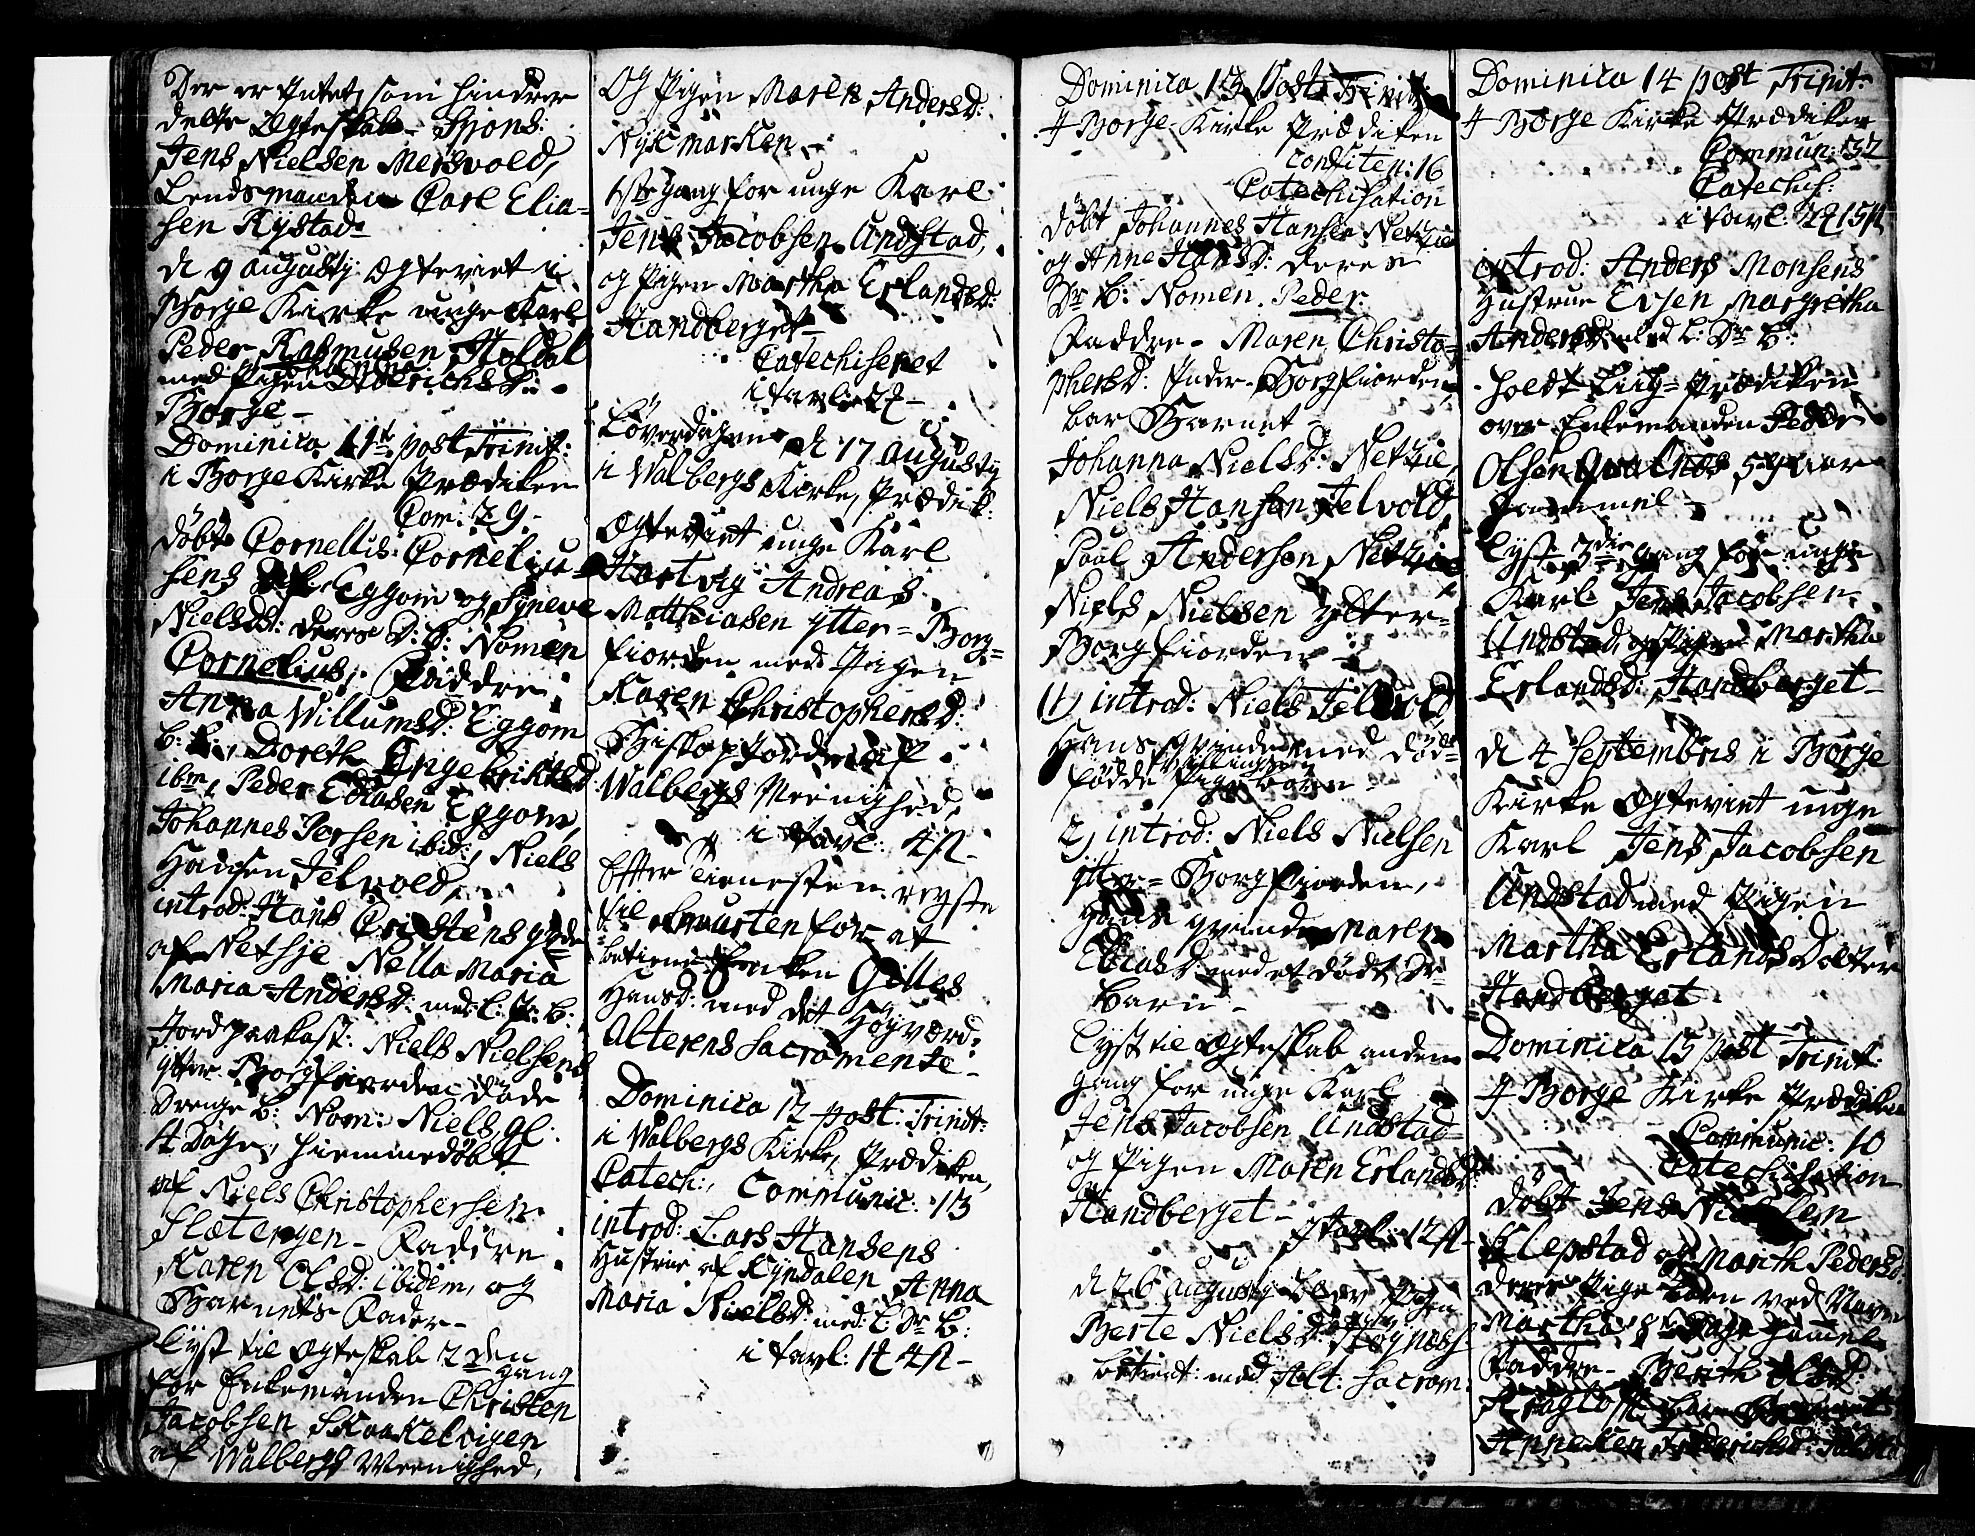 Der er Intet, som hindrer
dette Ægteskab. Spons:
Jens Nielsen Mersvold,
Lendsmanden Carl Elia-
sen Rystad.
d. 9 augusty Ægteviet i
Borge Kirke unge Karl
Peder Rasmusen Holdal
med Pigen
Borge -
Dominica 11te post Trinit:
i Borge Kirke Prædiken
Com: 29.
døbt Cornellis Corneliu-
sens af Eggom og Syneve
Nielsd: deres D: B: Nomen
Cornelius, Faddre
Anna Willumsd: Eggom
b: B:, Doreth Engebrikted
ibm, Peder Ediasen Eggom,
Johannes Persen ibid:, Niels
Hansen Jelvold,
introd: Hans Cristens qvde
af Netsje Nella Maria
Maria Andersd: med l: Dr: B:
Jordpaakast: Niels Nielsens
ytter Borgfiorden døde
Drenge B: Nom: Niels gl:
4 Dage, hiemmedøbt
af Niels Christophersen
Slætengen - Faddre
Karen Olsd: ibidem, og
Barnets Fader -
Lyst til Ægteskab 2den
gang
for Enkemanden Christen
Jacobsen Skaakelvigen
af Walbergs Meenighed,
Og Pigen Maren Andersd:
Nysmarken -
1ste gang for unge Karl
Jens Jacobsen Undstad,
og Pigen Martha Erlandsd:
Handberget -
Catechiseret
i tavl: 27 -
Løverdagen d 17 augusty
i Walbergs Kirke, Prædik:
Ægteviet unge Karl
Hartvig Andreas
Matthiasen ytter-Borg-
fiorden med Pigen
Karen Christophersd:
Biskopjorden af
Walbergs Meenighed,
i tavl: 4 s -
Effter Tienesten reyste
til Smurten for at
betiene Enken Gilles
Hansd: med det Høyværd:
Alterens Sacramente -
Dominica 12 post: Trinit:
i Walbergs Kirke, Prædiken,
Catech:, Communic: 13
introd: Lars Hansens
Hustrue af Ryndalen Anna
Maria Nielsd: med l: Dr B:
i tavl: 4 s -
Dominica 13 Post Trinit:
J Borge Kirke Prædiken
confiten: 16
Catechisation
døbt Johannes Hansen Netsie
og Anne Hansd: deres
Dr B: Nomen Peder.
Faddre - Maren Christo-
phersd: Inder-Borgfiorden
bar Barnet -
Johanna Nielsd: Netsie,
Niels Hansen Jelvold
Paul Andersen Netsie
Niels Nielsen ytter-
Borgfiorden
1) introd: Niels Jelvold
Hans qvinde med død-
fødde Tvillinge
Pige børn -
2) introd: Niels Nielsen
ytter-Borgfiorden,
Hans qvinde Maren
Eliasd: med et dødt Dr
barn -
Lyst til Ægteskab anden
gang for unge Karl
Jens Jacobsen Undstad
og Pigen Maren Erlandsd:
Handberget -
J tavl: 12 s -
d 26 augusty blev Pigen
Berte Nielsd:
betient med Alt: Sacram:
Dominica 14 post Trinit:
J Borge Kirke Prædiken
Commun: 32
Catechis:
i tavl:
introd: Anders Monsens
Hustrue Evsen Margretha
Andersd: med l: Dr B:
holdt Liig-Prædiken
over Enkemanden Peder
Olsen Qvalnæs 59 aar
gammel -
Lyst 3die gang for unge
Karl Jens Jacobsen
Undstad og Pigen Martha
Erlandsd: Handberget -
d 4 Septembris i Borge
Kirke Ægteviet unge
Karl Jens Jacobsen
Undstad med Pigen
Martha Erlands Dotter
Handberget
Dominica 15 post Trinit:
J Borge Kirke Prædiken
Communic: 10
Catechisation
døbt Jens Nielsen
Klepstad og Marith Pedersd:
deres Pige Barn ved Navn
Martha, 8te Dage gammel
Faddre - Berith Olsd:
bar Barnet
Anneken Friderichsd: